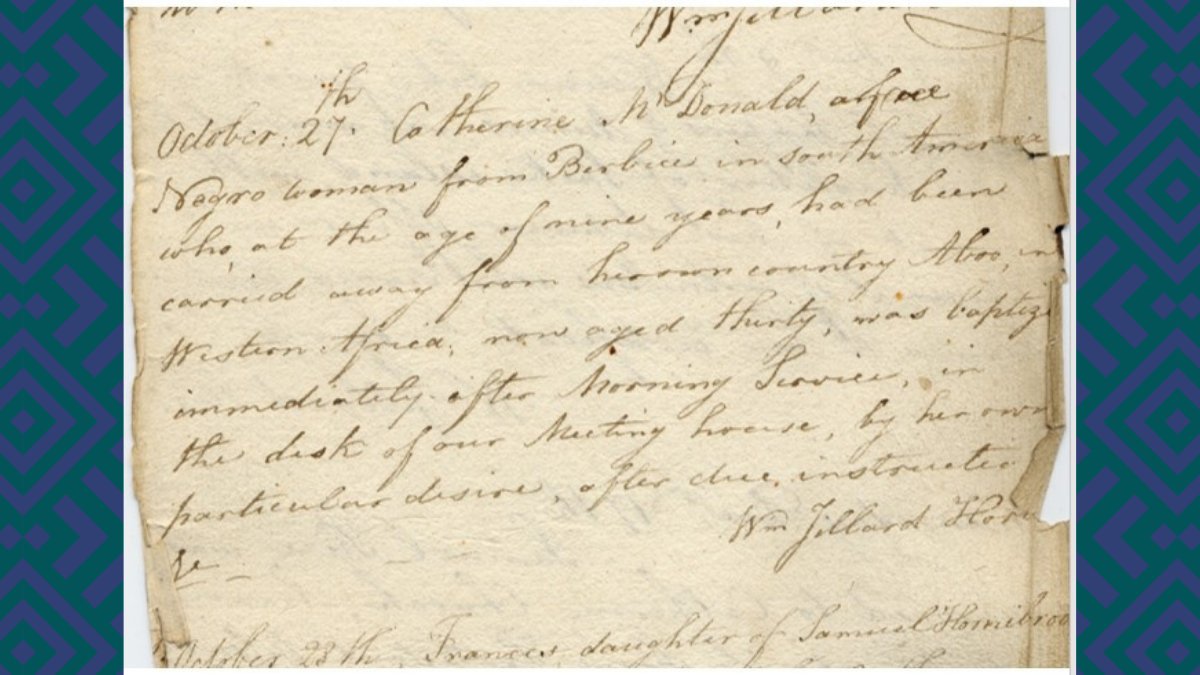 Wm Jillard
October. 27th. Catherine Mc Donald, a free
Negro woman from Berbice in south America
who, at the age of nine years, had been
carried away from her own country Aboo, in
Western Africa, now aged thirty, was baptize
immediately after Morning Service, in
the desk of our Meeting house, by her own
particular desire, after due instructio
Wm Jillard Hor
October 28th, Frances, daughter of Samuel Hornibroo